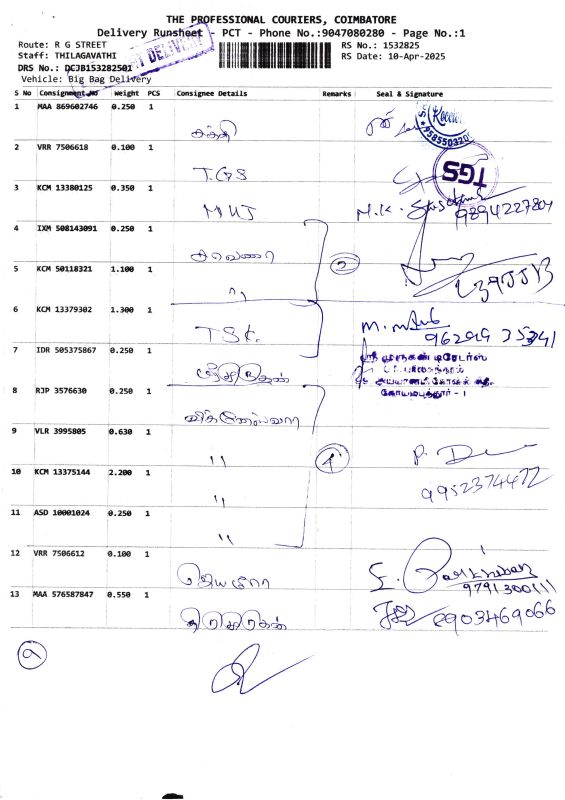 THE PROFESSIONAL COURIERS, COIMBATORE
Delivery Runsheet - PCT - Phone No.:9047080280 - Page No.:1
Route: R G STREET
RS No.: 1532825
Staff: THILAGAVATHI
RS Date: 10-Apr-2025
DRS No.: DCJB153282501
DELIVERY
Vehicle: Big Bag Delivery
S No Consignment No Weight PCS Consignee Details Remarks Seal & Signature
1 MAA 869602746 0.250 1 சக்தி
2 VRR 7506618 0.100 1 T.G.S TGS
3 KCM 13380125 0.350 1 M.K. 9894227804
4 IXM 508143091 0.250 1
5 KCM 50118321 1.100 1 " 2
6 KCM 13379302 1.300 1 T S K. 96299 35341
7 IDR 505375867 0.250 1 ஸ்ரீமுருகன் ஸ்ரீ முருகன் டிரேடர்ஸ்
கோயமுத்தூர் - 1
8 RJP 3576630 0.250 1 விக்னேஸ்வரா
9 VLR 3995805 0.630 1 " 4 P.
10 KCM 13375144 2.200 1 " 9952374472
11 ASD 10001024 0.250 1 "
12 VRR 7506612 0.100 1 9791300111
13 MAA 576587847 0.550 1 8903469066
9